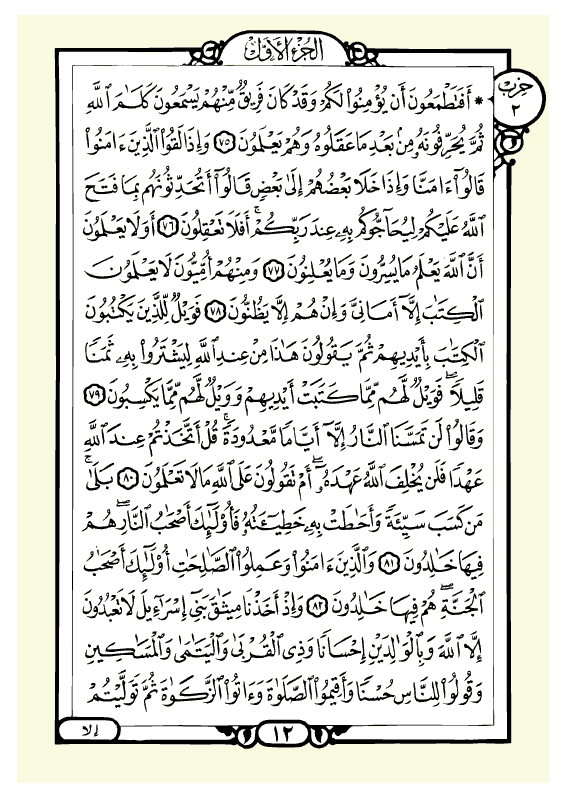 الجزء الأول
حزب
٢
* أَفَتَطْمَعُونَ أَن يُؤْمِنُوا۟ لَكُمْ وَقَدْ كَانَ فَرِيقٌ مِّنْهُمْ يَسْمَعُونَ كَلَـٰمَ ٱللَّهِ
ثُمَّ يُحَرِّفُونَهُۥ مِنۢ بَعْدِ مَا عَقَلُوهُ وَهُمْ يَعْلَمُونَ ٧٥ وَإِذَا لَقُوا۟ ٱلَّذِينَ ءَامَنُوا۟
قَالُوٓا۟ ءَامَنَّا وَإِذَا خَلَا بَعْضُهُمْ إِلَىٰ بَعْضٍ قَالُوٓا۟ أَتُحَدِّثُونَهُم بِمَا فَتَحَ
ٱللَّهُ عَلَيْكُمْ لِيُحَآجُّوكُم بِهِۦ عِندَ رَبِّكُمْ ۚ أَفَلَا تَعْقِلُونَ ٧٦ أَوَلَا يَعْلَمُونَ
أَنَّ ٱللَّهَ يَعْلَمُ مَا يُسِرُّونَ وَمَا يُعْلِنُونَ ٧٧ وَمِنْهُمْ أُمِّيُّونَ لَا يَعْلَمُونَ
ٱلْكِتَـٰبَ إِلَّآ أَمَانِىَّ وَإِنْ هُمْ إِلَّا يَظُنُّونَ ٧٨ فَوَيْلٌ لِّلَّذِينَ يَكْتُبُونَ
ٱلْكِتَـٰبَ بِأَيْدِيهِمْ ثُمَّ يَقُولُونَ هَـٰذَا مِنْ عِندِ ٱللَّهِ لِيَشْتَرُوا۟ بِهِۦ ثَمَنًا
قَلِيلًا ۖ فَوَيْلٌ لَّهُم مِّمَّا كَتَبَتْ أَيْدِيهِمْ وَوَيْلٌ لَّهُم مِّمَّا يَكْسِبُونَ ٧٩
وَقَالُوا۟ لَن تَمَسَّنَا ٱلنَّارُ إِلَّآ أَيَّامًا مَّعْدُودَةً ۚ قُلْ أَتَّخَذْتُمْ عِندَ ٱللَّهِ
عَهْدًا فَلَن يُخْلِفَ ٱللَّهُ عَهْدَهُۥٓ ۖ أَمْ تَقُولُونَ عَلَى ٱللَّهِ مَا لَا تَعْلَمُونَ ٨٠ بَلَىٰ ۚ
مَن كَسَبَ سَيِّئَةً وَأَحَـٰطَتْ بِهِۦ خَطِيٓـَٔتُهُۥ فَأُو۟لَـٰٓئِكَ أَصْحَـٰبُ ٱلنَّارِ ۖ هُمْ
فِيهَا خَـٰلِدُونَ ٨١ وَٱلَّذِينَ ءَامَنُوا۟ وَعَمِلُوا۟ ٱلصَّـٰلِحَـٰتِ أُو۟لَـٰٓئِكَ أَصْحَـٰبُ
ٱلْجَنَّةِ ۖ هُمْ فِيهَا خَـٰلِدُونَ ٨٢ وَإِذْ أَخَذْنَا مِيثَـٰقَ بَنِىٓ إِسْرَٰٓءِيلَ لَا تَعْبُدُونَ
إِلَّا ٱللَّهَ وَبِٱلْوَٰلِدَيْنِ إِحْسَانًا وَذِى ٱلْقُرْبَىٰ وَٱلْيَتَـٰمَىٰ وَٱلْمَسَـٰكِينِ
وَقُولُوا۟ لِلنَّاسِ حُسْنًا وَأَقِيمُوا۟ ٱلصَّلَوٰةَ وَءَاتُوا۟ ٱلزَّكَوٰةَ ثُمَّ تَوَلَّيْتُمْ
١٢
إلا